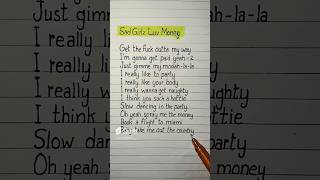 Sad Girlz Luv Money
Get the fuck outta my way
I'm gonna get paid yeah-2
Just gimme my moolah-la-la
I really like to party
I really like your body
I really wanna get naughty
I think you such a hottie
Slow dancing in the party
Oh yeah spray me the money
Book a flight to miami
take me out the country
I really
I really
I really
I think
Slow dancing
Oh yeah
-la-la
y
dy
ghty
ottie
party